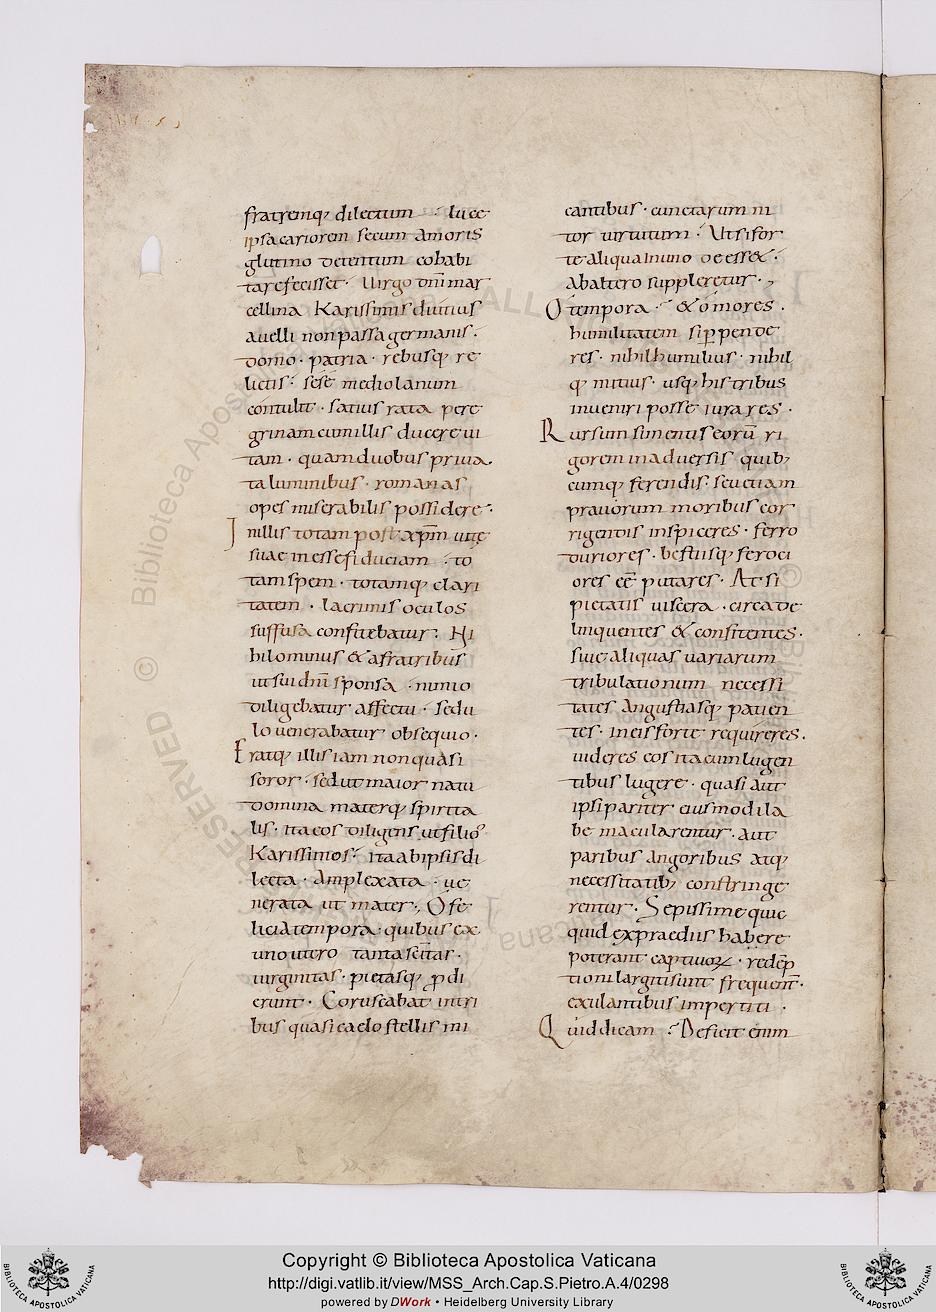 fratremq; dilectum · lucę
ipsa cariorem secum amoris
glutino detentum cohabi
tare fecisset · Uirgo dnī mar
cellina karissimis diutius
auelli non passa germanis ·
domo · patria · rebusq; re
lictis · sese mediolanum
contulit · satius rata pere
grinam cum illis ducere ui
tam · quam duobus priua
ta luminibus · romanas
opes miserabilis possidere ·
In illis totam post xp̄m uitę
suae inesse fiduciam · to
tam spem · totamq; clari
tatem · lacrimis oculos
suffusa confitebatur · Hi
hilominus & a fratribus
ut sui dnī sponsa · nimio
diligebatur affectu · sedu
lo uenerabatur obsequio ·
Eratq; illis iam non quasi
soror · sed ut maior natu
domina materq; spirita
lis · ita eos diligens ut filios
karissimos · ita ab ipsis di
lecta · amplexata · ue
nerata ut mater · O fe
licia tempora · quibus ex
uno utero tanta scītas ·
uirginitas · pietasq; p̄di
erunt · Coruscabat in tri
bus quasi caelo stellis mi
cantibus · cunctarum ni
tor uirtutum · Ut si for
te aliqua in uno deesset ·
ab altero suppleretur ·
O tempora · & o mores ·
humilitatem si ꝑpende
res · nihil humilius · nihil
q; mitius · usq; his tribus
inueniri posse iurares ·
Rursum si mentis eorū ri
gorem in aduersis quib;
cumq; ferendis · seu etiam
prauorum moribus cor
rigendis inspiceres · ferro
duriores · bestiisq; feroci
ores eē putares · At si
pietatis uiscera · circa de
linquentes & confitentes ·
siue aliquas uariarum
tribulationum necessi
tates angustiasq; patien
tes · in eis forte requireres ·
uideres eos ita cum lugen
tibus lugere · quasi aut
ipsi pariter eiusmodi la
be macularentur · aut
paribus angoribus atq;
necessitatib; constringe
rentur · Sepissime quic
quid ex praediis habere
poterant captiuoꝝ · redēp
tioni largiti sunt frequent̄ ·
exulantibus impertiti ·
Quid dicam · Deficit enim
Copyright © Biblioteca Apostolica Vaticana
http://digi.vatlib.it/view/MSS_Arch.Cap.S.Pietro.A.4/0298
powered by DWork • Heidelberg University Library